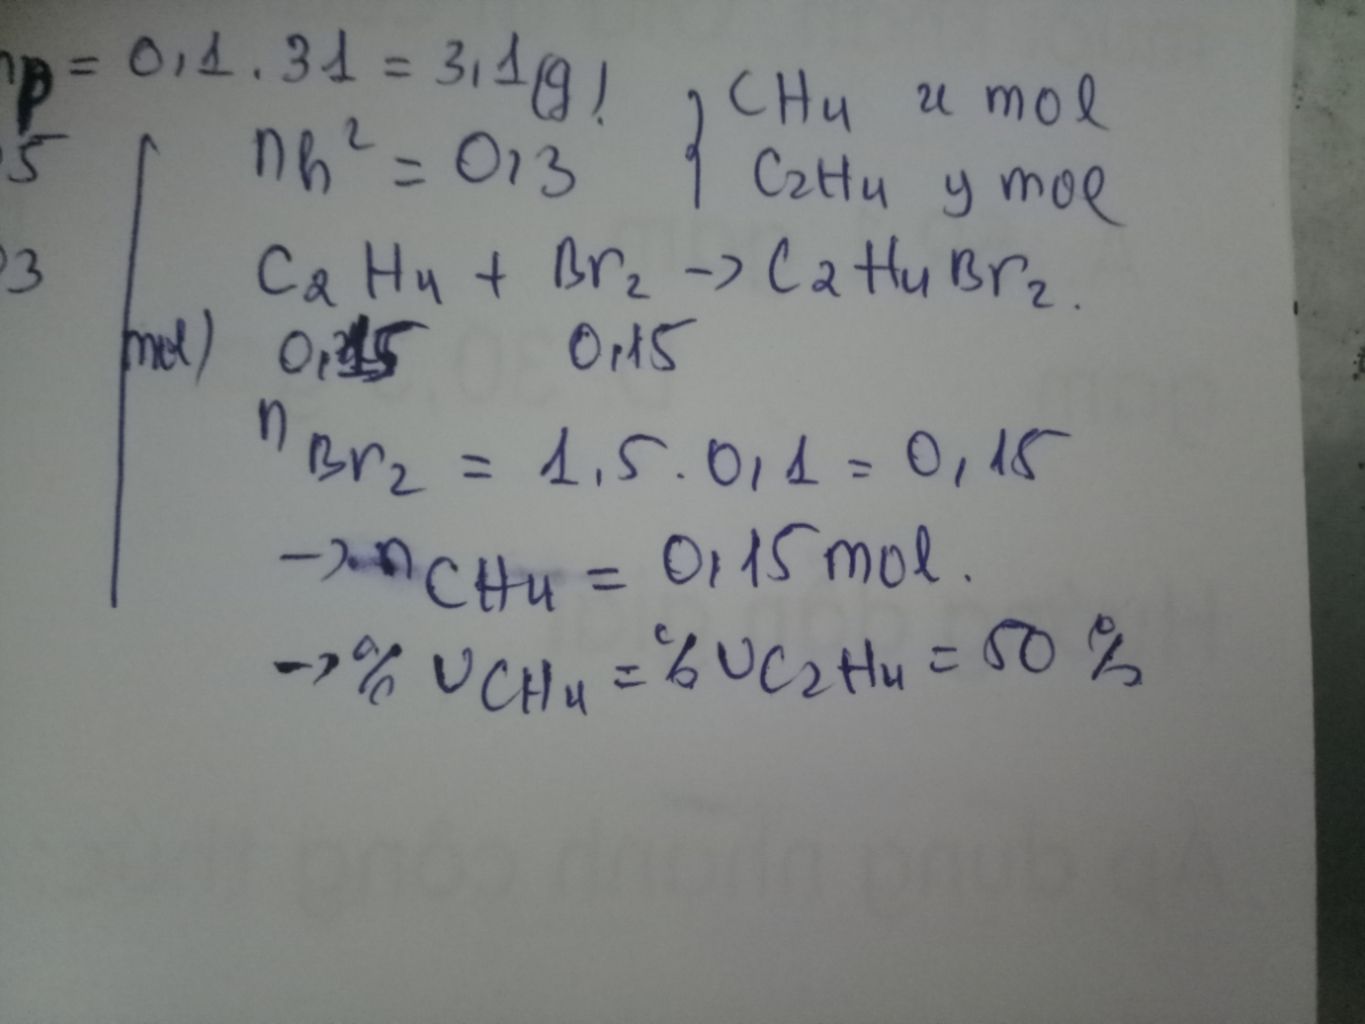 p = 0,1 . 31 = 3,1(g)
{ CH4 x mol
5
nh² = 0,3
C2H4 y mol
3
C2H4 + Br2 -> C2H4Br2.
mol) 0,15 0,15
nBr2 = 1,5 . 0,1 = 0,15
-> nCH4 = 0,15 mol.
-> % VCH4 = % VC2H4 = 50 %